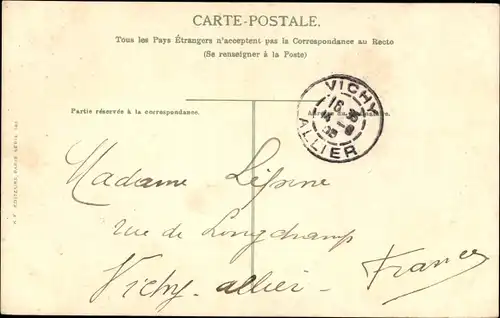 CARTE-POSTALE.
Tous les Pays Étrangers n'acceptent pas la Correspondance au Recto
(Se renseigner à la Poste)
VICHY
ALLIER
Partie réservée à la correspondance.
Madame Lépine
rue de Longchamp
Vichy - allier - France